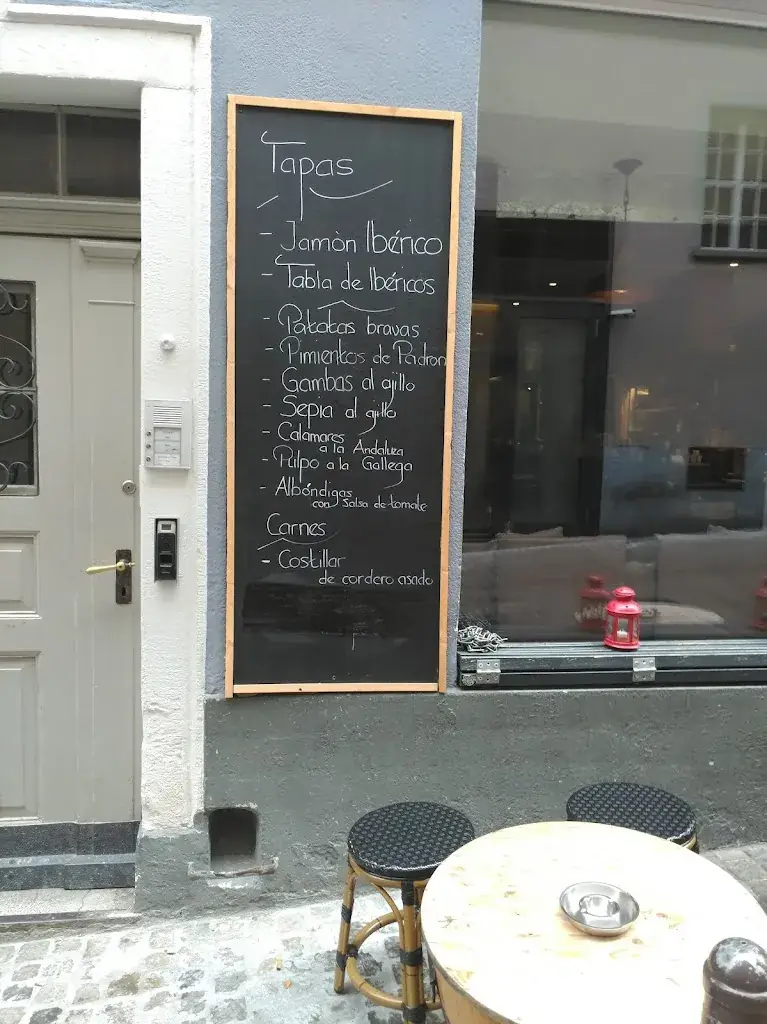 Tapas
- Jamòn Ibérico
- Tabla de Ibéricos
- Patatas bravas
- Pimientos de Padron
- Gambas al ajillo
- Sepia al ajillo
- Calamares
a la Andaluza
- Pulpo a la Gallega
- Albóndigas
con salsa de tomate
Carnes
- Costillar
de cordero asado